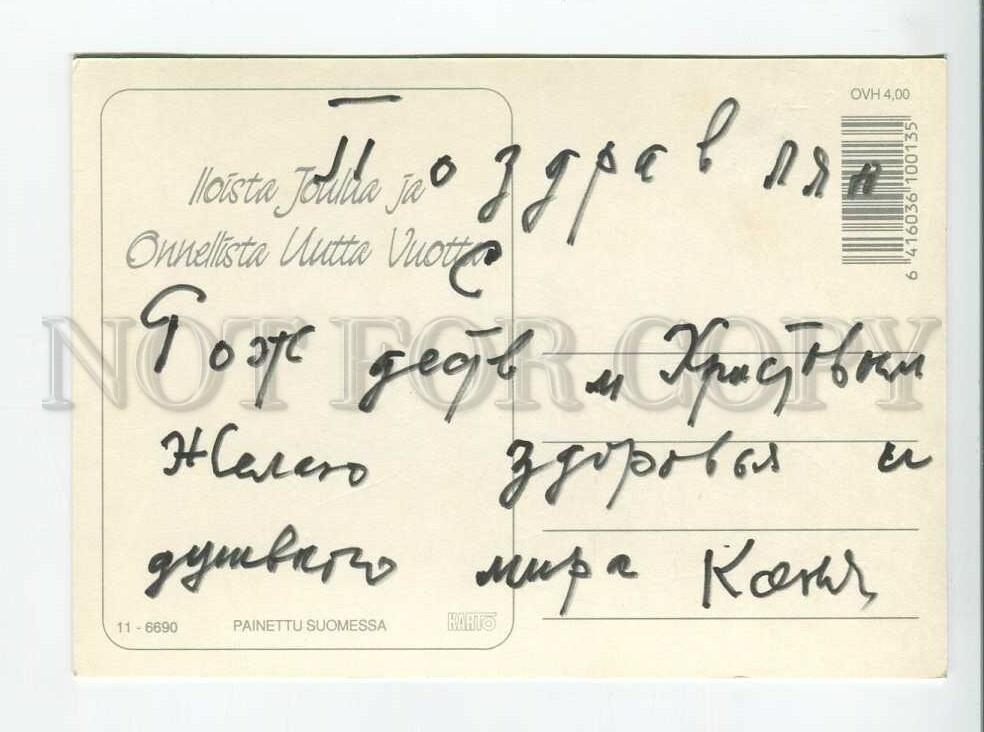 OVH 4,00
Поздравляя
Iloista Joulua ja
Onnellista Uutta Vuotta
С
Рождеств м Христовым
NOT FOR COPY
Желаю здоровья и
душевного мира
11 - 6690 PAINETTU SUOMESSA KARTO
6 416036 100135